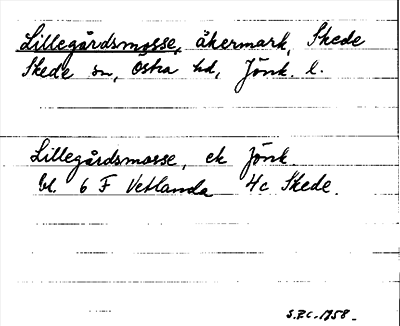 Lillegårdsmosse, åkermark, Skede
Skede sn, Östra hd, Jönk. l.
Lillegårdsmosse, ek Jönk.
bl. 6 F Vetlanda 4c Skede.
S.F.C. 1958.